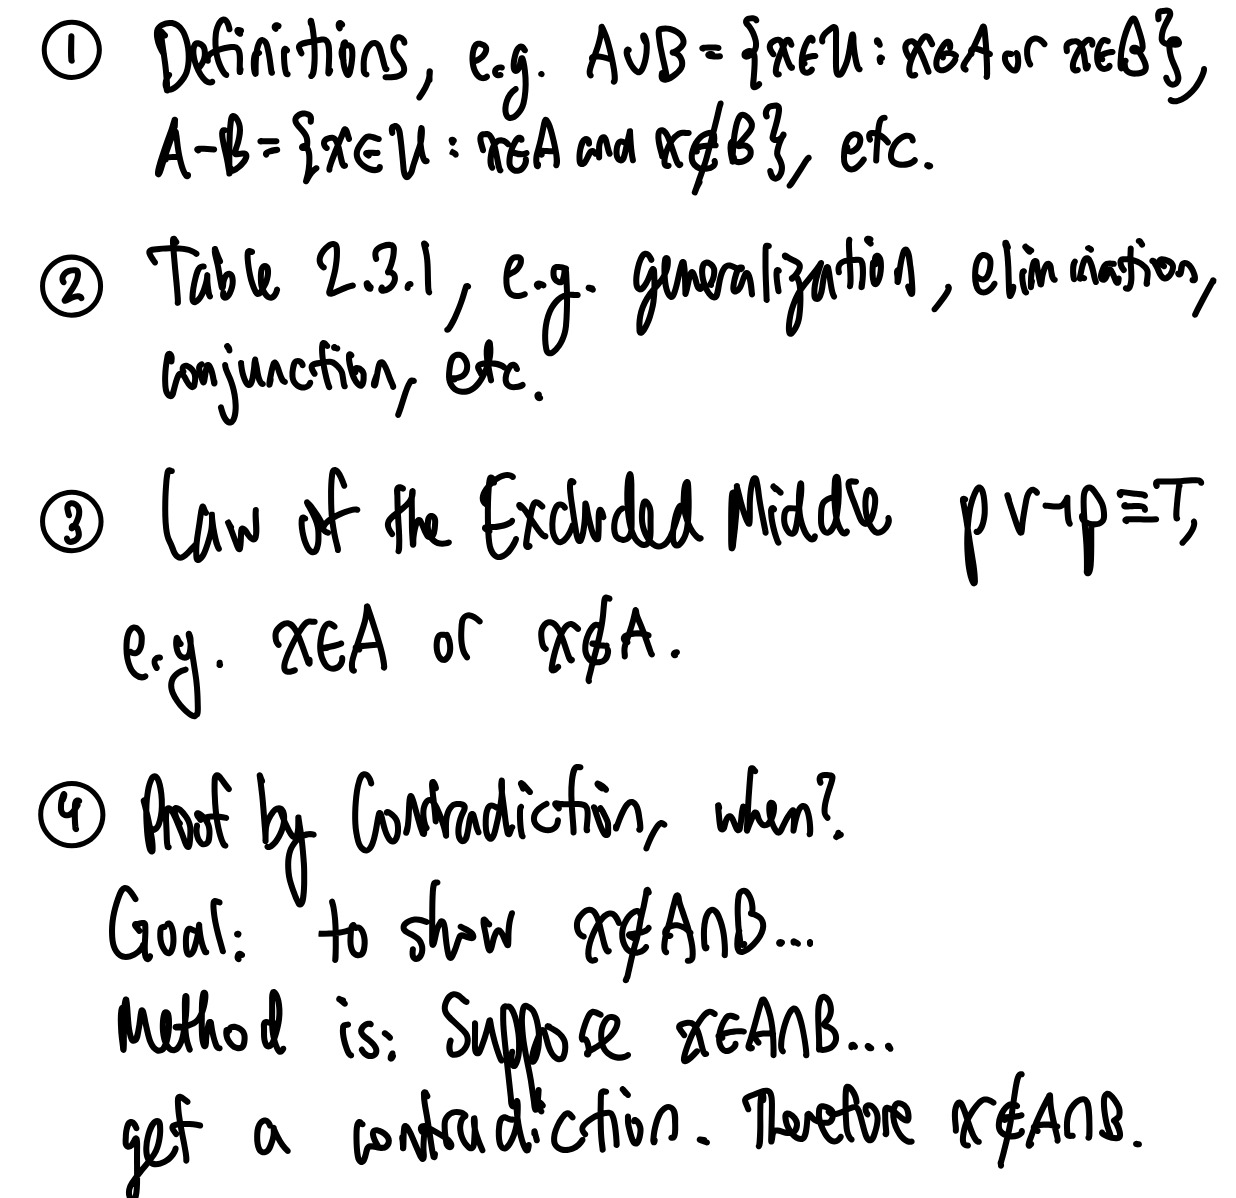 ① Definitions, e.g. A∪B = {x∈U : x∈A or x∈B},
A-B = {x∈U : x∈A and x∉B}, etc.
② Table 2.3.1, e.g. generalization, elimination,
conjunction, etc.
③ Law of the Excluded Middle p∨¬p≡T,
e.g. x∈A or x∉A.
④ Proof by Contradiction, when?
Goal: to show x∉A∩B...
Method is: Suppose x∈A∩B...
get a contradiction. Therefore x∉A∩B.